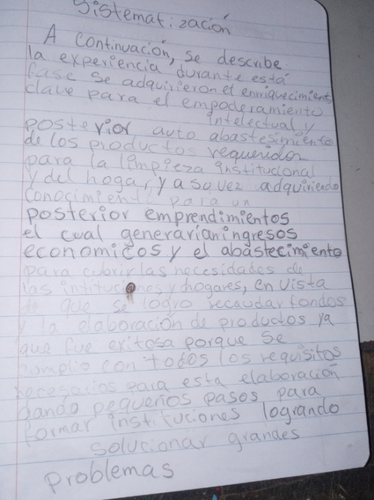 Sistematización
A continuación, se describe
la experiencia durante está
fase se adquirieron el enriquecimiento
clave para el empoderamiento
Intelectual y
posterior auto abastesimiento
de los productos requeridos
para la limpieza institucional
y del hogar, y a su vez adquiriendo
conocimiento para un
posterior emprendimientos
el cual generarian ingresos
economicos y el abastecimiento
para cubrir las necesidades de
las instituciones y hogares, en vista
que se lodro recaudar fondos
y la elaboración de productos ya
que fue exitosa porque se
cumplio con todos los requisitos
necesarios para esta elaboración
dando pequeños pasos para
formar instituciones logrando
solucionar grandes
problemas